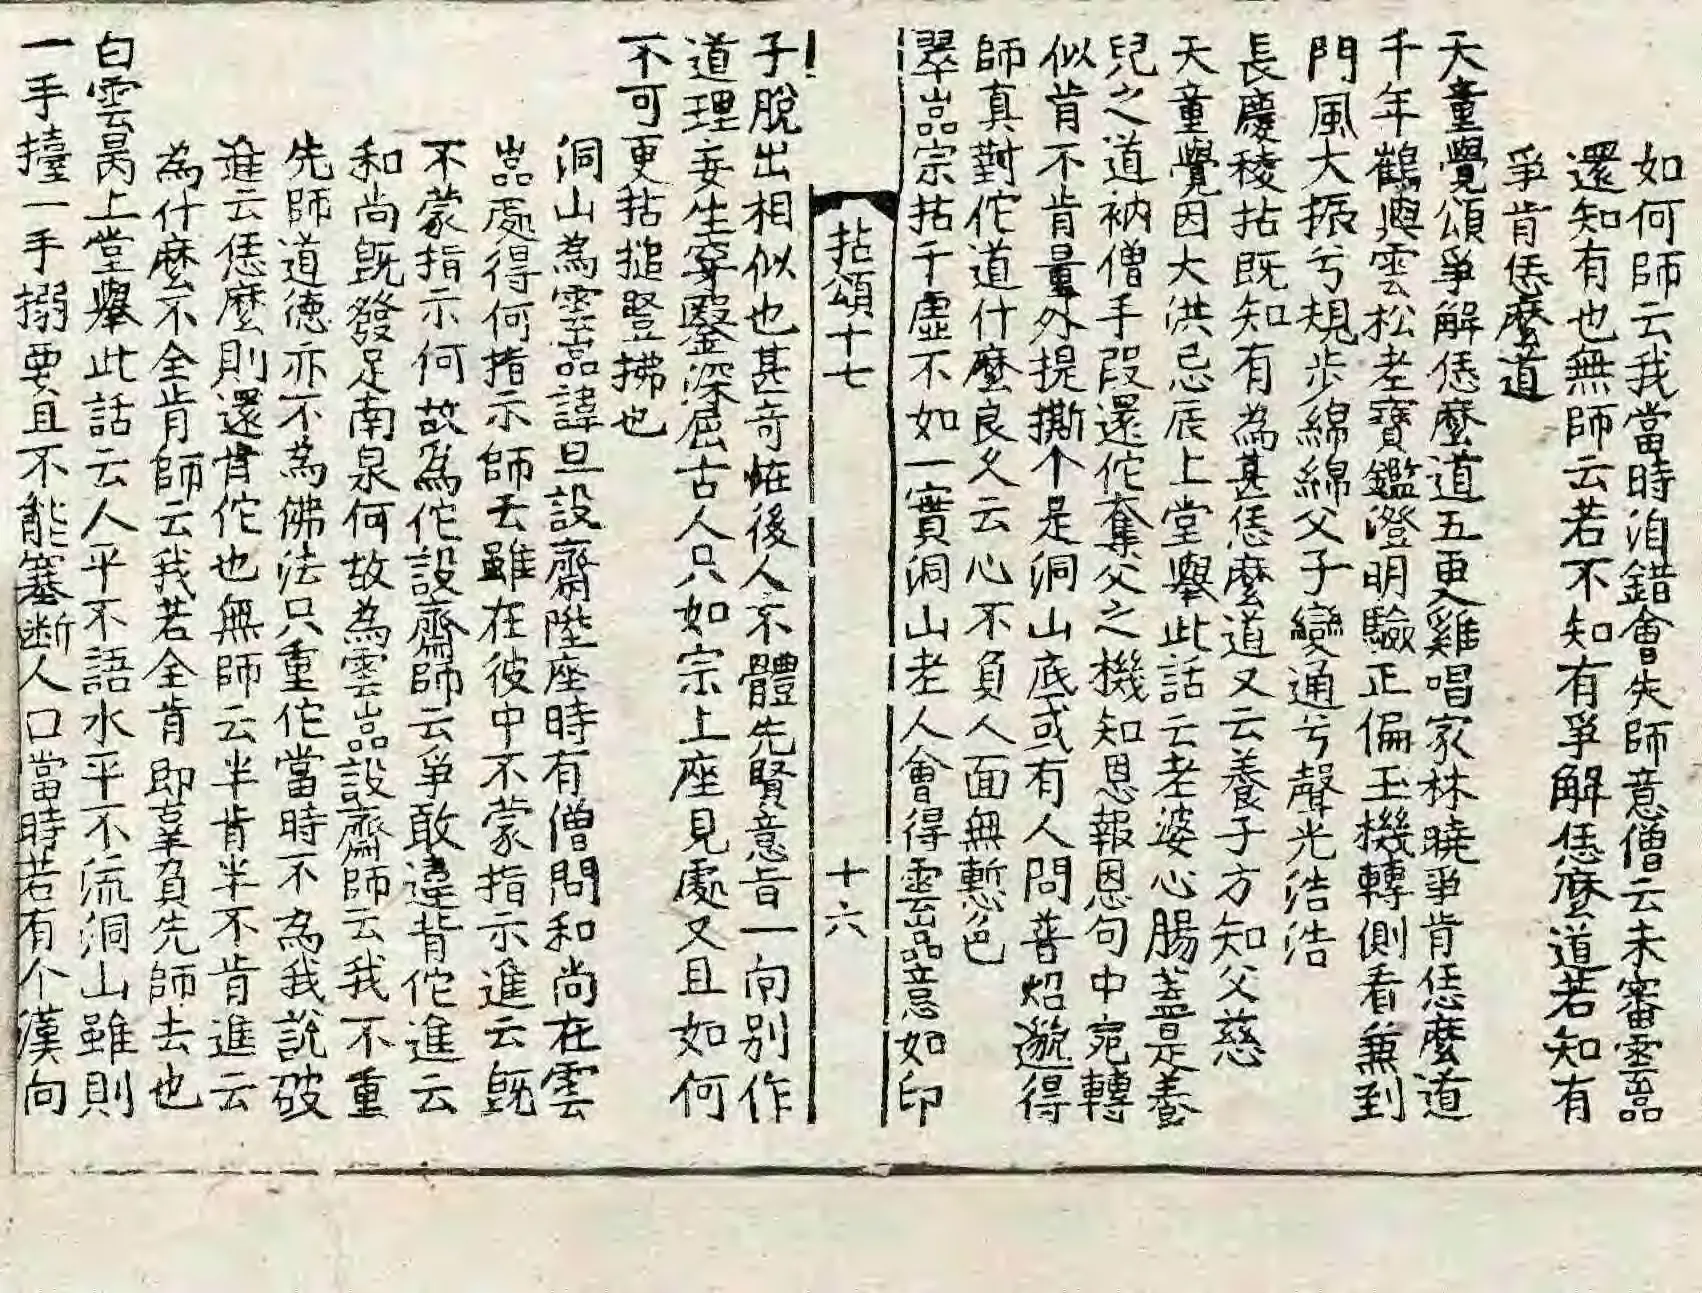 如何師云我當時洎錯會先師意僧云未審雲嵓
還知有也無師云若不知有爭解恁麽道若知有
爭肯恁麽道
天童覺頌爭解恁麽道五更雞唱家林曉爭肯恁麽道
千年鶴與雲松老寶鑑澄明驗正偏玉機轉側看兼到
門風大振兮規步綿綿父子變通兮聲光浩浩
長慶稜拈既知有為甚恁麽道又云養子方知父慈
天童覺因大洪忌辰上堂舉此話云老婆心腸盖是養
兒之道衲僧手段還佗奪父之機知恩報恩句中宛轉
似肯不肯量外提撕个是洞山底或有人問普炤邈得
師真對佗道什麽良久云心不負人面無慙色
翠嵓宗拈千虛不如一實洞山老人會得雲嵓意如印
拈頌十七
十六
子脫出相似也甚奇恠後人不體先賢意旨一向別作
道理妄生穿鑿深屈古人只如宗上座見處又且如何
不可更拈搥豎拂也
洞山為雲嵓諱旦設齋陞座時有僧問和尚在雲
嵓處得何指示師云雖在彼中不蒙指示進云旣
不蒙指示何故為佗設齋師云爭敢違背佗進云
和尚旣發足南泉何故為雲嵓設齋師云我不重
先師道德亦不為佛法只重佗當時不為我說破
進云恁麽則還肯佗也無師云半肯半不肯進云
為什麽不全肯師云我若全肯即辜負先師去也
白雲昺上堂舉此話云人平不語水平不流洞山雖則
一手擡一手搦要且不能塞斷人口當時若有个漢向